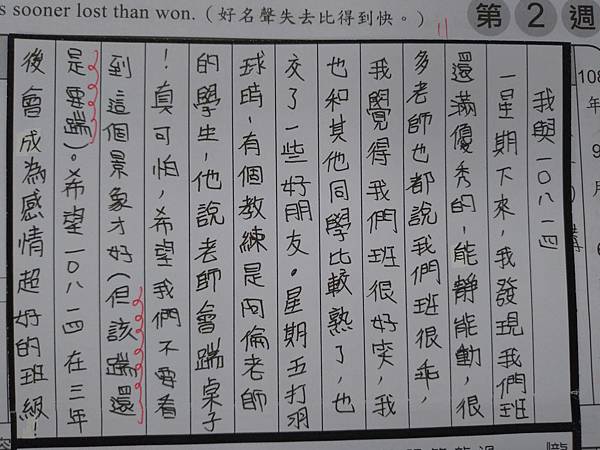 s sooner lost than won.(好名聲失去比得到快。)
第2週
108
年
9
月
我與一〇八一四
一星期下來,我發現我們班
還滿優秀的,能靜能動,很
多老師也都說我們班很乖,
我覺得我們班很好笑,我
也和其他同學比較熟了,也
交了一些好朋友。星期五打羽
球時,有個教練是阿倫老師
的學生,他說老師會踹桌子
!真可怕,希望我們不要看
到這個景象才好(但該踹還
是要踹)。希望一〇八一四在三年
後會成為感情超好的班級!